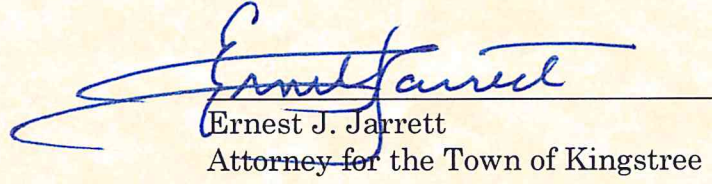 Ernest Jarrett
Ernest J. Jarrett
Attorney for the Town of Kingstree